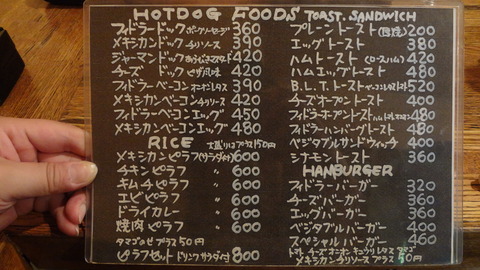 HOTDOG FOODS
フィドラードック ポークソーセージ 360
メキシカンドック チリソース 390
ジャーマンドック 420
チーズ ドック ピザ風味 420
フィドラーベーコン オニオンレタス 390
メキシカンベーコン チリソース 420
フィドラーベーコンエッグ 450
メキシカンベーコンエッグ 480
RICE 大盛りはプラス150円
メキシカンピラフ (サラダ付) 600
チキンピラフ 〃 600
キムチピラフ 〃 600
エビピラフ 〃 600
ドライカレー 〃 600
焼肉ピラフ 〃 600
タマゴのせ プラス50円
ピラフセット ドリンクサラダ付 800
TOAST. SANDWICH
プレーントースト 200
エッグトースト 380
ハムトースト (ロースハム) 420
ハムエッグトースト 480
B.L.T.トースト 520
チーズオープントースト 400
フィドラーオープントースト 480
フィドラーハンバーグトースト 480
ベジタブルサンドウィッチ 400
シナモントースト 360
HAMBURGER
フィドラーバーガー 320
チーズバーガー 360
エッグバーガー 360
ベジタブルバーガー 400
スペシャルバーガー 460
トマト チーズ オニオン キュウリ レタス タマゴ
メキシカンチリソース プラス 50円